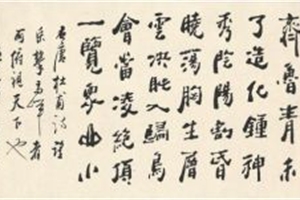 齊魯青未
了造化鍾神
秀陰陽割昏
曉蕩胸生層
雲決眥入歸鳥
會當凌絕頂
一覽眾山小
右唐杜甫詩
天下也